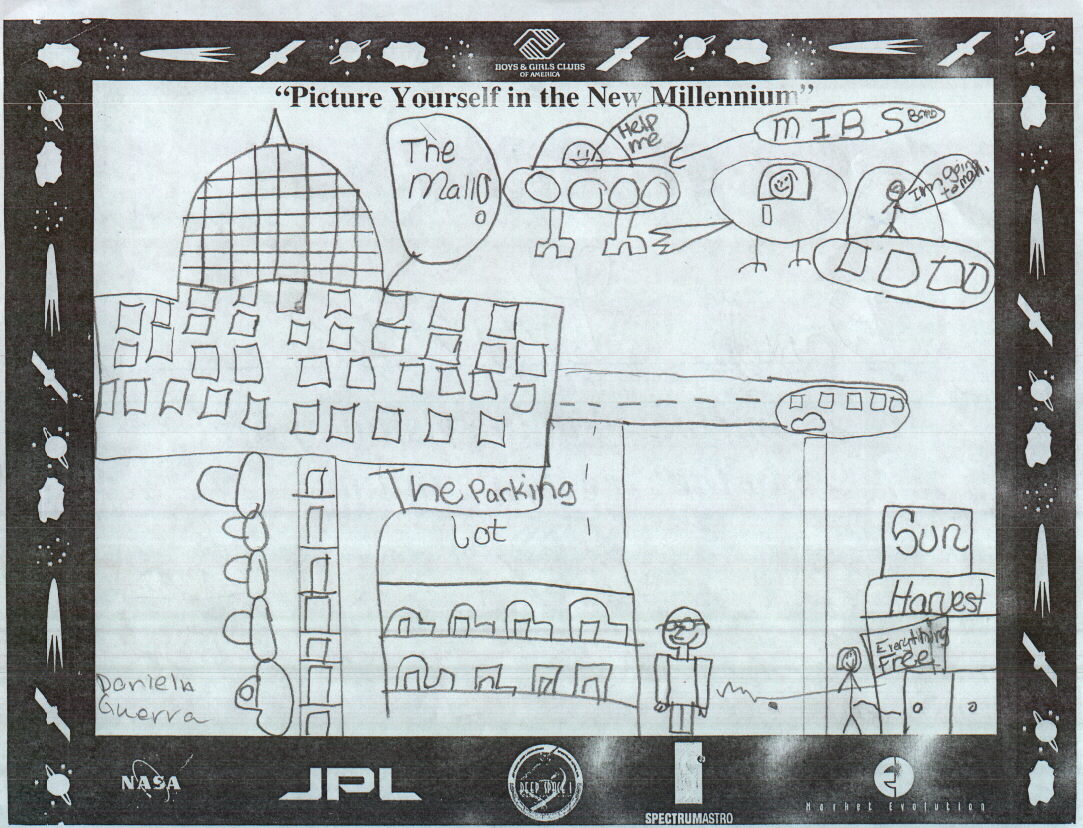 BOYS & GIRLS CLUBS
OF AMERICA
“Picture Yourself in the New Millennium”
The
Mall
Help
me
MIBS BAND
I'm going
to mall.
The Parking
Lot
Sun
Harvest
Everything
Free
Daniela
Guerra
NASA
JPL
DEEP SPACE 1
SPECTRUMASTRO
Market Evolution